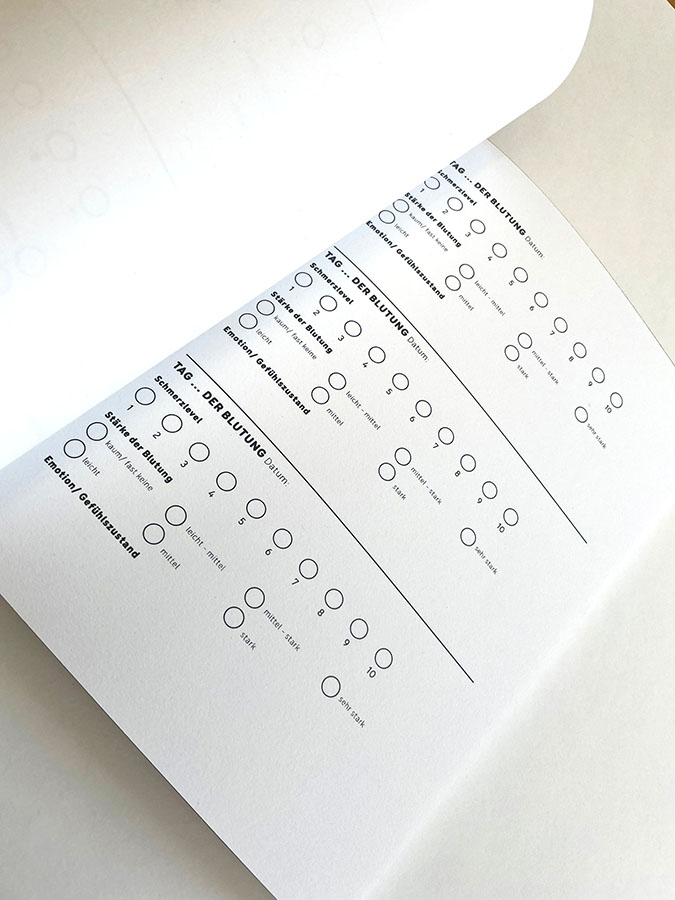 TAG ... DER BLUTUNG Datum:
Schmerzlevel
1 2 3 4 5 6 7 8 9 10
Stärke der Blutung
kaum/ fast keine leicht - mittel mittel - stark sehr stark
leicht mittel stark
Emotion/ Gefühlszustand
TAG ... DER BLUTUNG Datum:
Schmerzlevel
1 2 3 4 5 6 7 8 9 10
Stärke der Blutung
kaum/ fast keine leicht - mittel mittel - stark sehr stark
leicht mittel stark
Emotion/ Gefühlszustand
TAG ... DER BLUTUNG Datum:
Schmerzlevel
1 2 3 4 5 6 7 8 9 10
Stärke der Blutung
kaum/ fast keine leicht - mittel mittel - stark sehr stark
leicht mittel stark
Emotion/ Gefühlszustand